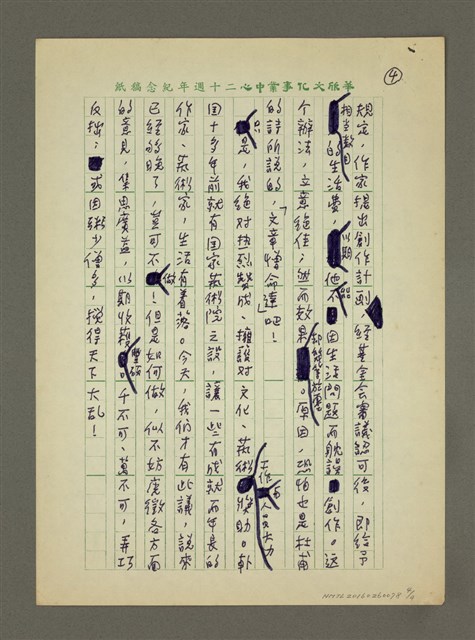 華欣文化事業中心二十週年紀念稿紙
④
規定，作家提出創作計劃，經基金會審議認可後，即給予
相當數目的生活費，以期他不因生活問題而躭誤創作。這
個辦法，立意絕佳；然而效果却幾等於零。原因，恐怕也是杜甫
的詩所說的，「文章憎命達」吧！
只是，我絕对热烈贊成、擁護对文化、藝術工作者人員大力獎助。韓
国十多年前就有国家藝術院之設，讓一些有成就而年長的
作家、藝術家，生活有着落。今天，我們才有此議，說來
已經夠晚了，豈可不做！但是如何做，似不妨廣徵各方面
的意見，集思廣益，以期收穫豐碩。千不可、萬不可，弄巧
反拙；或因粥少僧多，攪得天下大乱！
NMTL20160260078 4/4